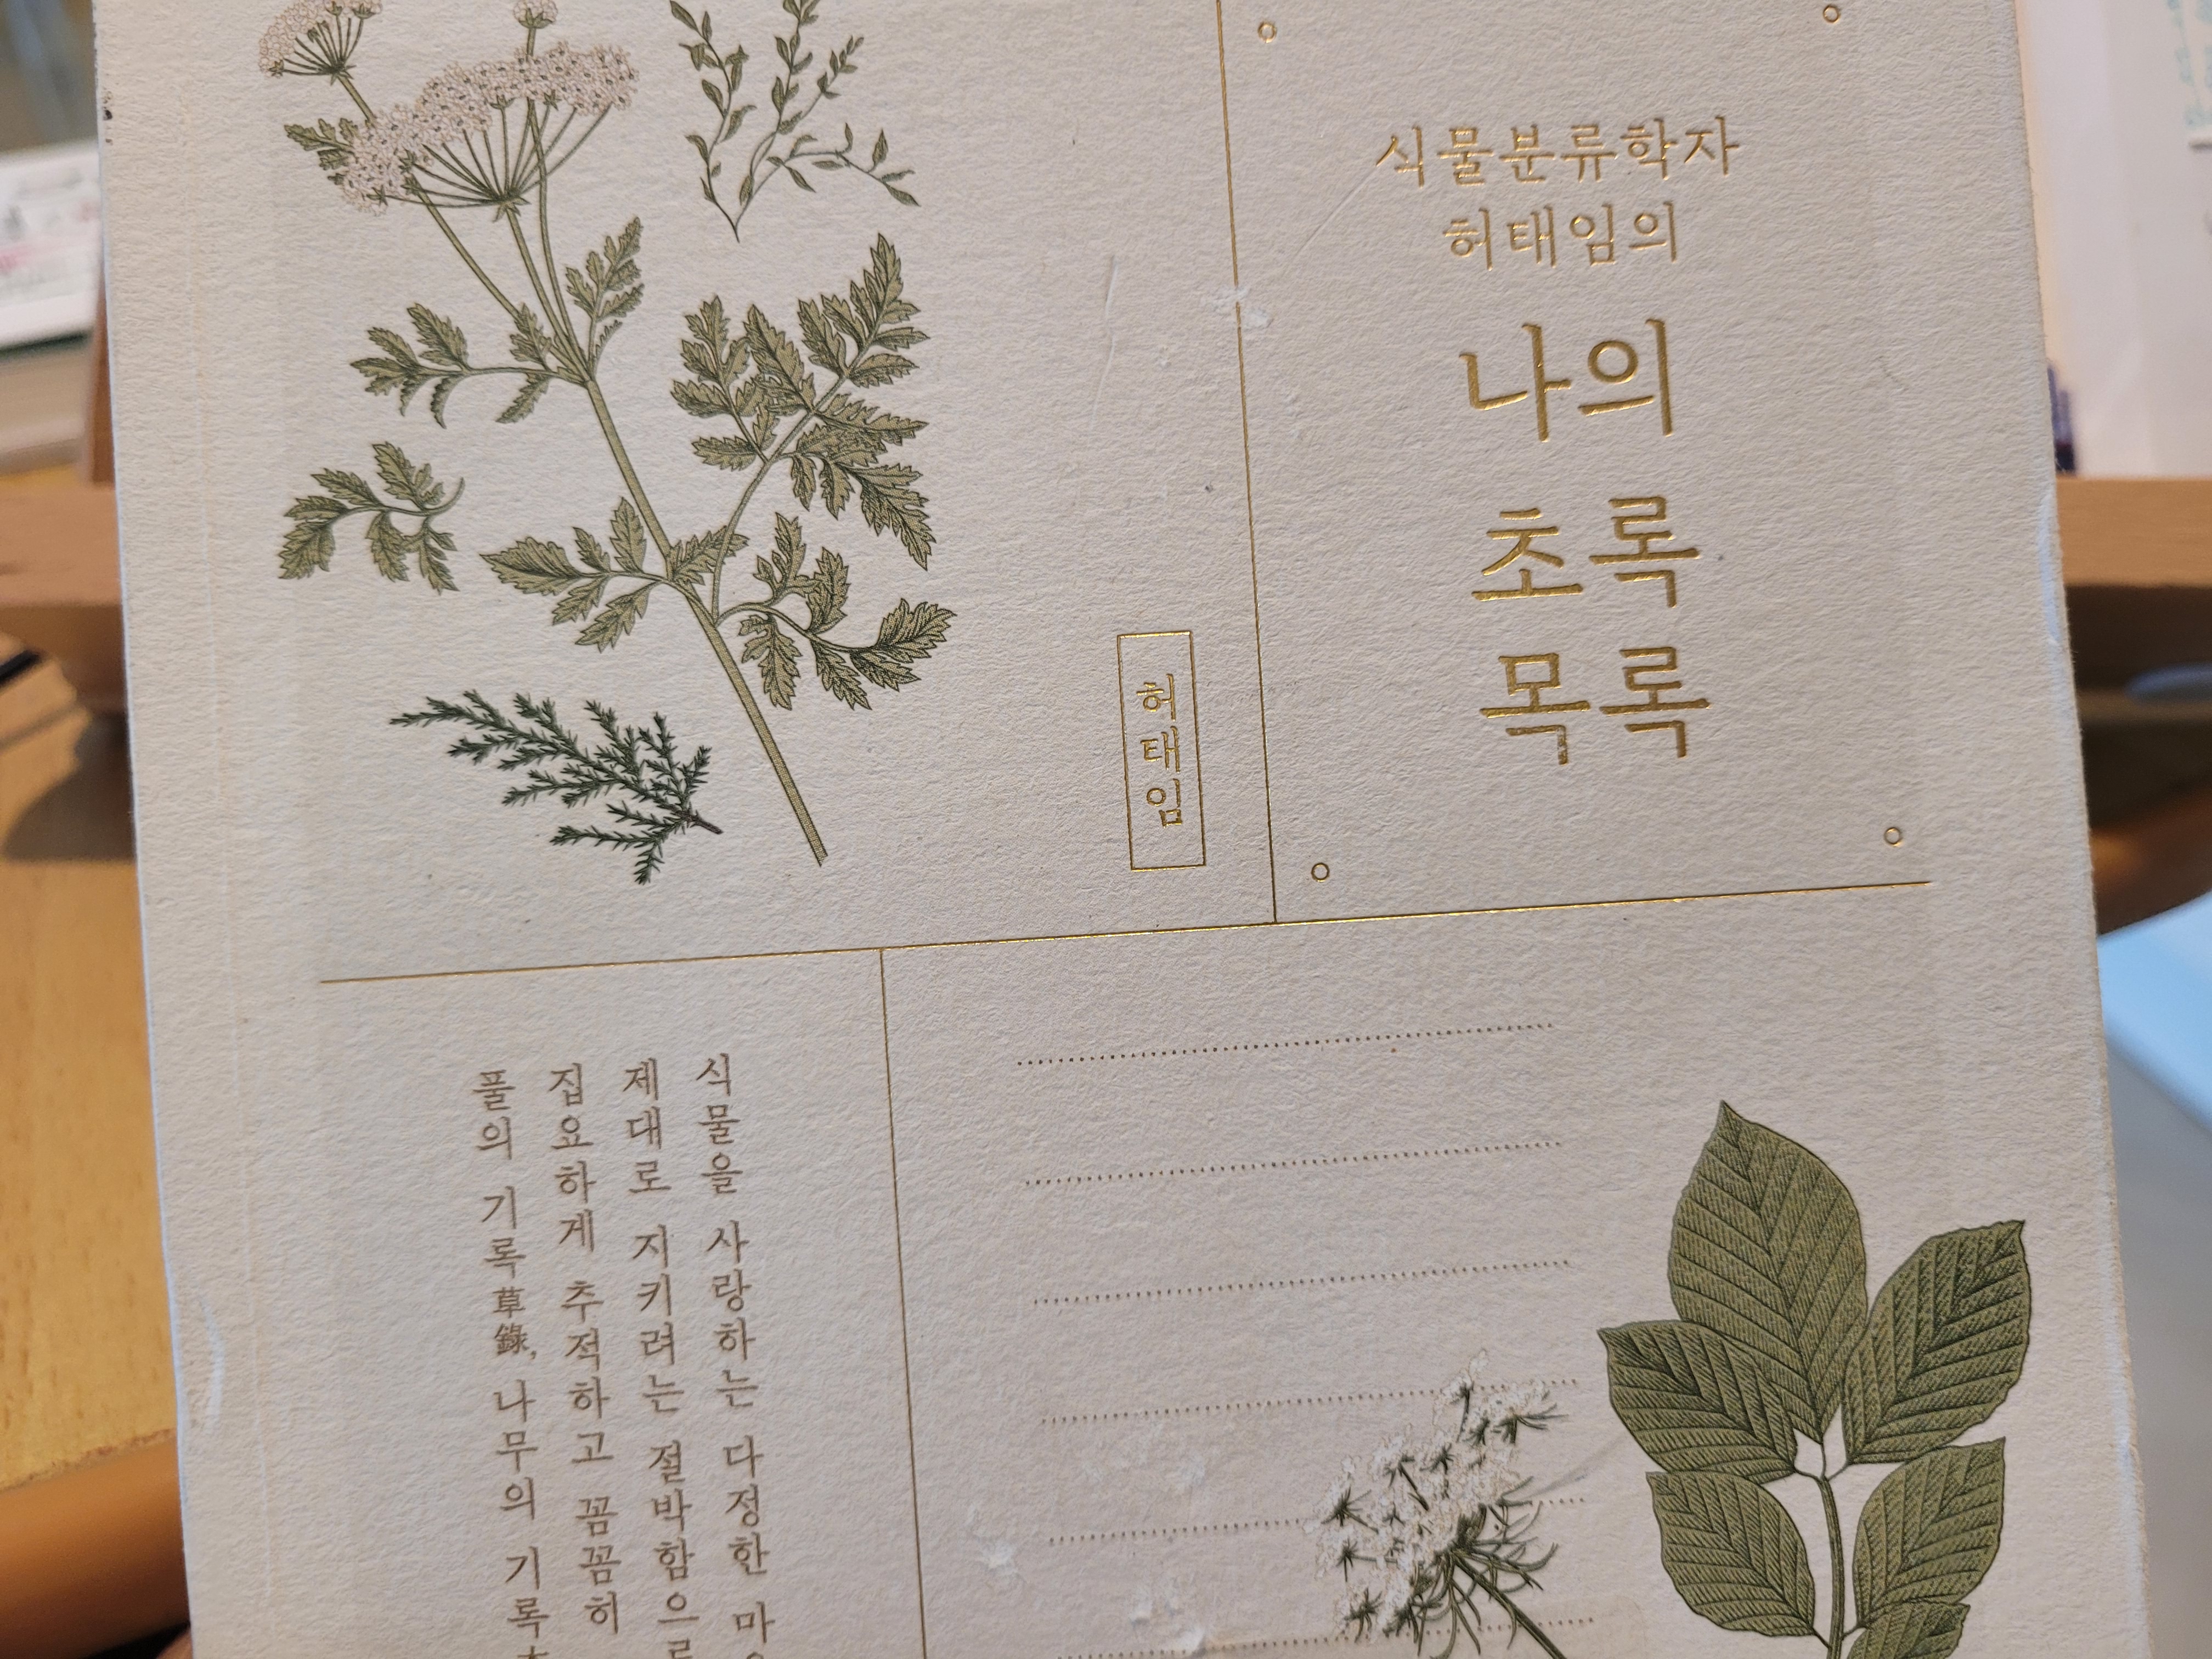 식물분류학자
허태임의
나의
초록
목록
허태임
식물을 사랑하는 다정한
제대로 지키려는 절박함으로
집요하게 추적하고 꼼꼼히
풀의 기록草錄, 나무의 기록